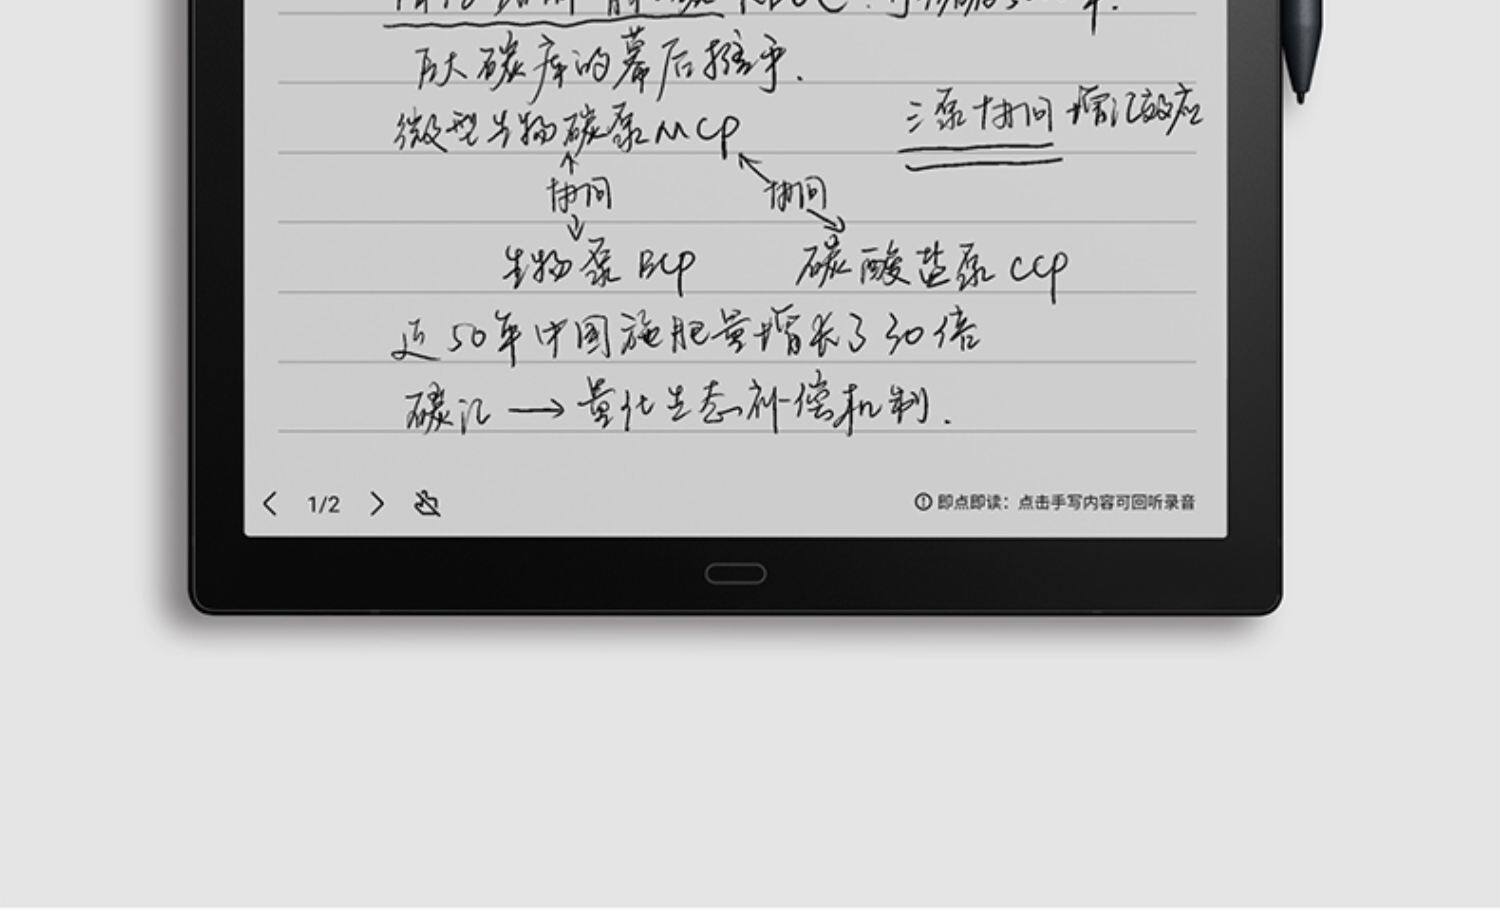 巨大碳库的幕后推手.
微型生物碳泵MCP
三泵协同增汇效应
协同 协同
生物泵BCP 碳酸盐泵CCP
近50年中国施肥量增长了30倍
碳汇→量化生态补偿机制.
1/2
即点即读：点击手写内容可回听录音